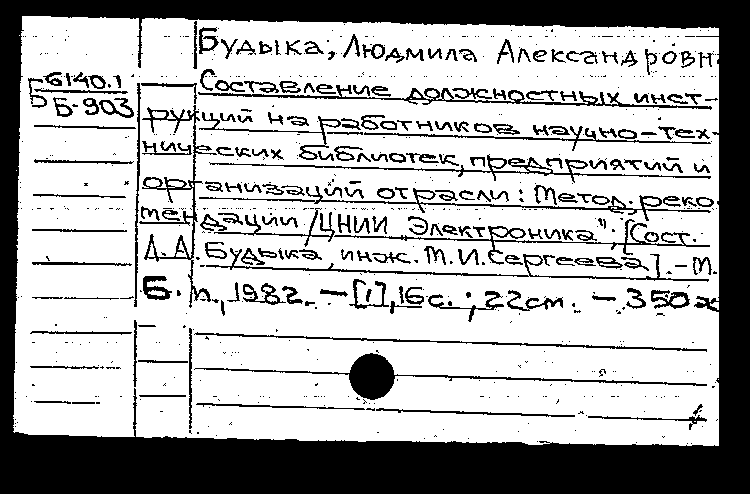 Будыка, Людмила Александровн
6140.1
Б-903
Составление должностных инст-
рукций на работников научно-тех-
нических библиотек, предприятий и
организаций отрасли: Метод. реко-
мендации / ЦНИИ „Электроника“; [Сост.
Л. А. Будыка, инж. М. И. Сергеева]. - М.
Б. и., 1982. - [1], 16 с. ; 22 см. - 350